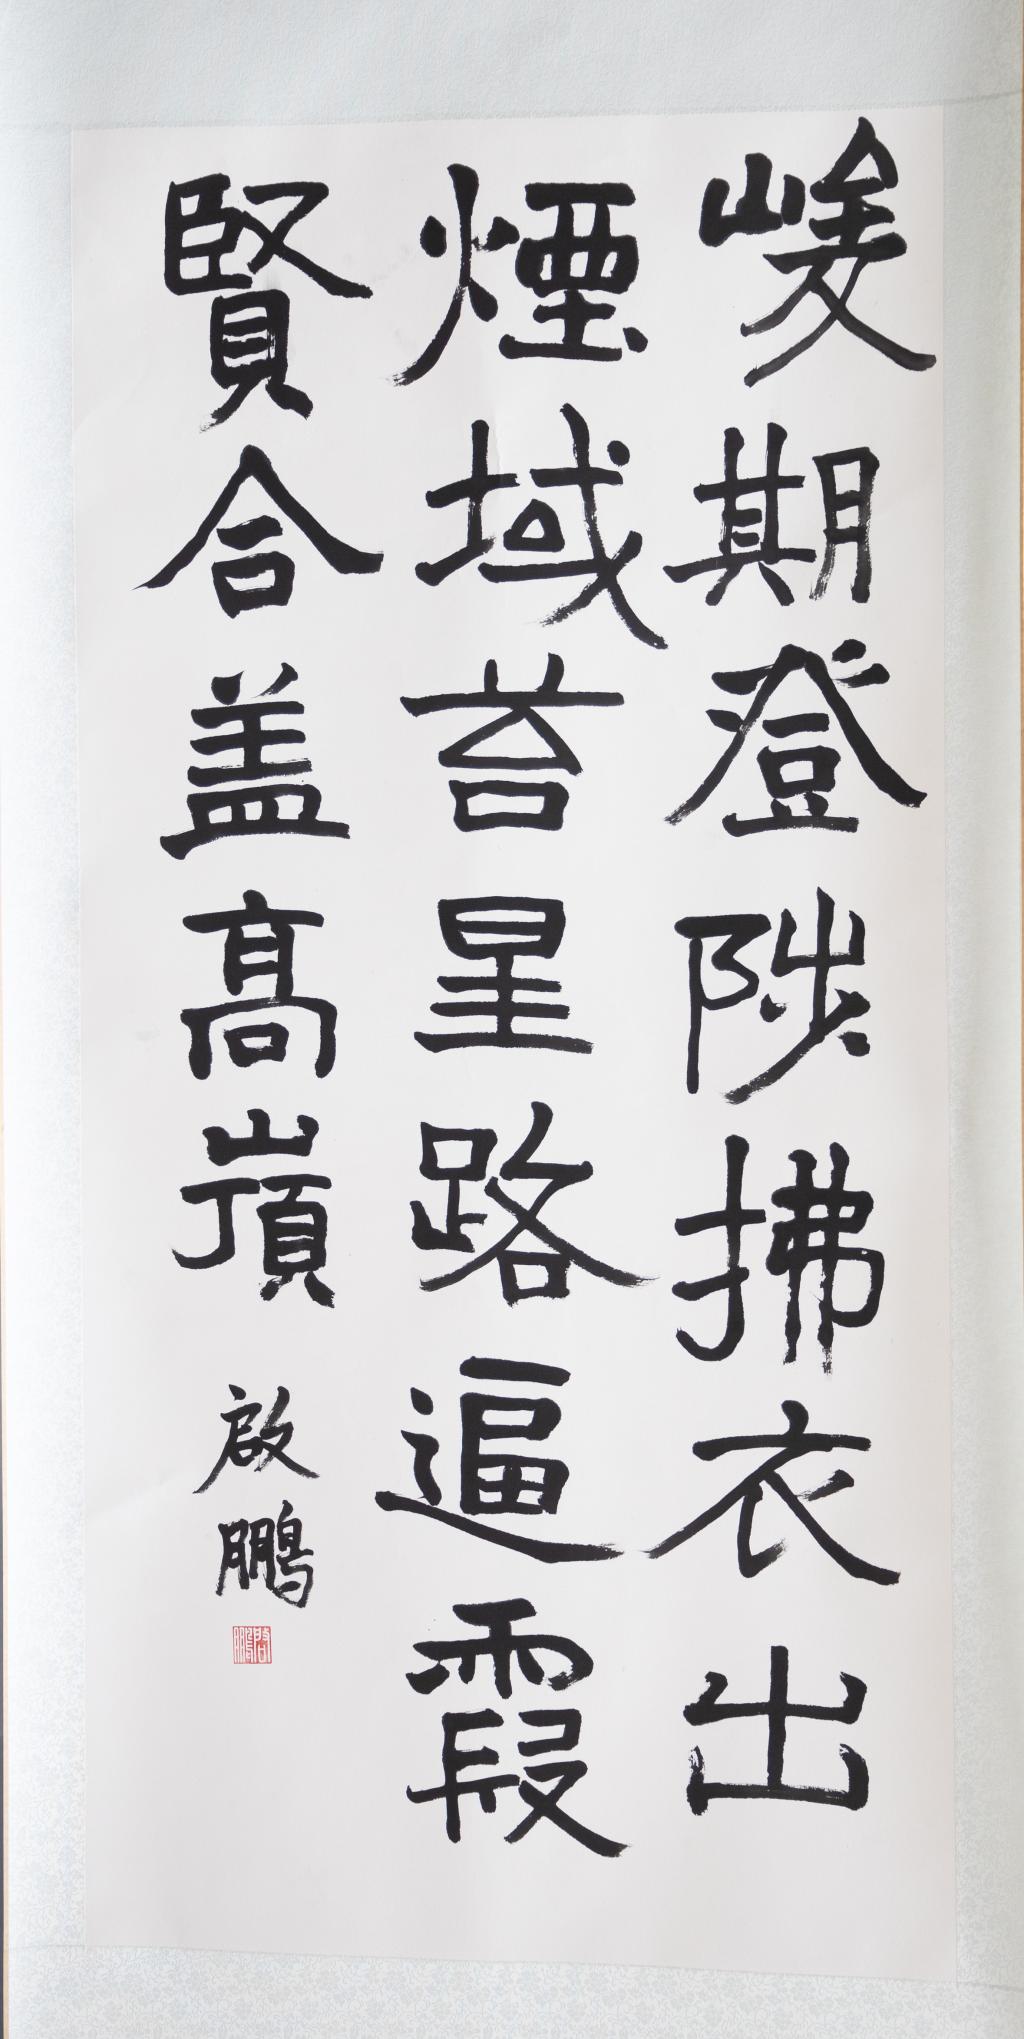 峻期登陟拂衣出
煙域苔星路逼霞
賢合盖高嶺
啟鵬
啟鵬